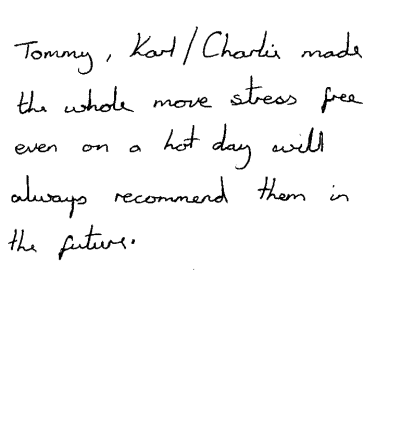 Tommy, Karl/Charlie made
the whole move stress free
even on a hot day will
always recommend them in
the future.